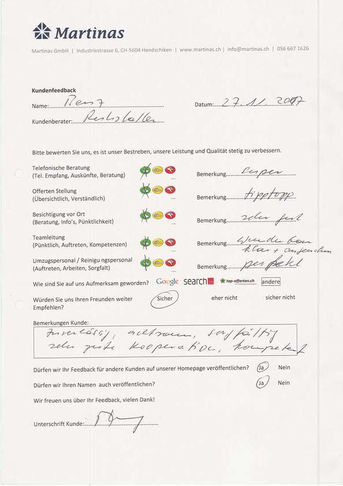 Martinas
Martinas GmbH | Industriestrasse 6, CH-5604 Hendschiken | www.martinas.ch | info@martinas.ch | 056 667 1626
Kundenfeedback
Name:
Datum: 27.11.2017
Kundenberater:
Bitte bewerten Sie uns, es ist unser Bestreben, unsere Leistung und Qualität stetig zu verbessern.
Telefonische Beratung
(Tel. Empfang, Auskünfte, Beratung) Bemerkung
Offerten Stellung
(Übersichtlich, Verständlich) Bemerkung tipptopp
Besichtigung vor Ort
(Beratung, Info's, Pünktlichkeit) Bemerkung sehr gut
Teamleitung
(Pünktlich, Auftreten, Kompetenzen) Bemerkung wunderbar
klar +
Umzugspersonal / Reinigungspersonal
(Auftreten, Arbeiten, Sorgfalt) Bemerkung perfekt
Wie sind Sie auf uns Aufmerksam geworden? Google search top-offerten.ch andere
Würden Sie uns Ihren Freunden weiter Empfehlen? Sicher eher nicht sicher nicht
Bemerkungen Kunde:
zuverlässig, achtsam, sorgfältig
sehr gute Kooperation, kompetent
Dürfen wir Ihr Feedback für andere Kunden auf unserer Homepage veröffentlichen? Ja Nein
Dürfen wir Ihren Namen auch veröffentlichen? Ja Nein
Wir freuen uns über Ihr Feedback, vielen Dank!
Unterschrift Kunde: